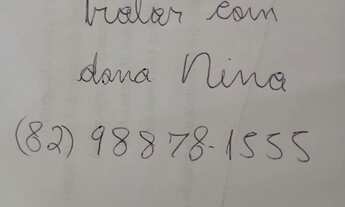 tratar com
dona Nina
(82) 98878-1555